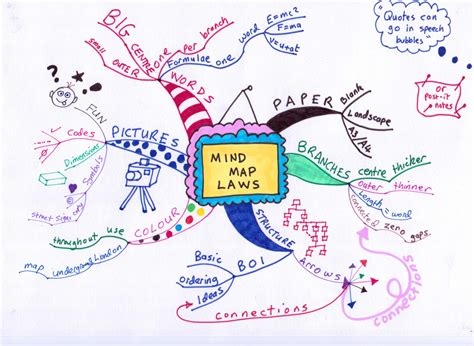 MIND
MAP
LAWS
PAPER
Blank
Landscape
A3/A4
BRANCHES
centre thicker
outer thinner
Length = word
connected zero gaps.
STRUCTURE
Arrows
connections
connections
BOI
Basic
ordering
Ideas
COLOUR
throughout use
map underground London
PICTURES
FUN
Codes
Dimensions
Symbols
street signs
WORDS
BIG CENTRE
small OUTER
one per branch
Formulae one word
E=mc²
F=ma
v=u+at
"Quotes can
go in speech
bubbles"
or
post-it
notes
?
!